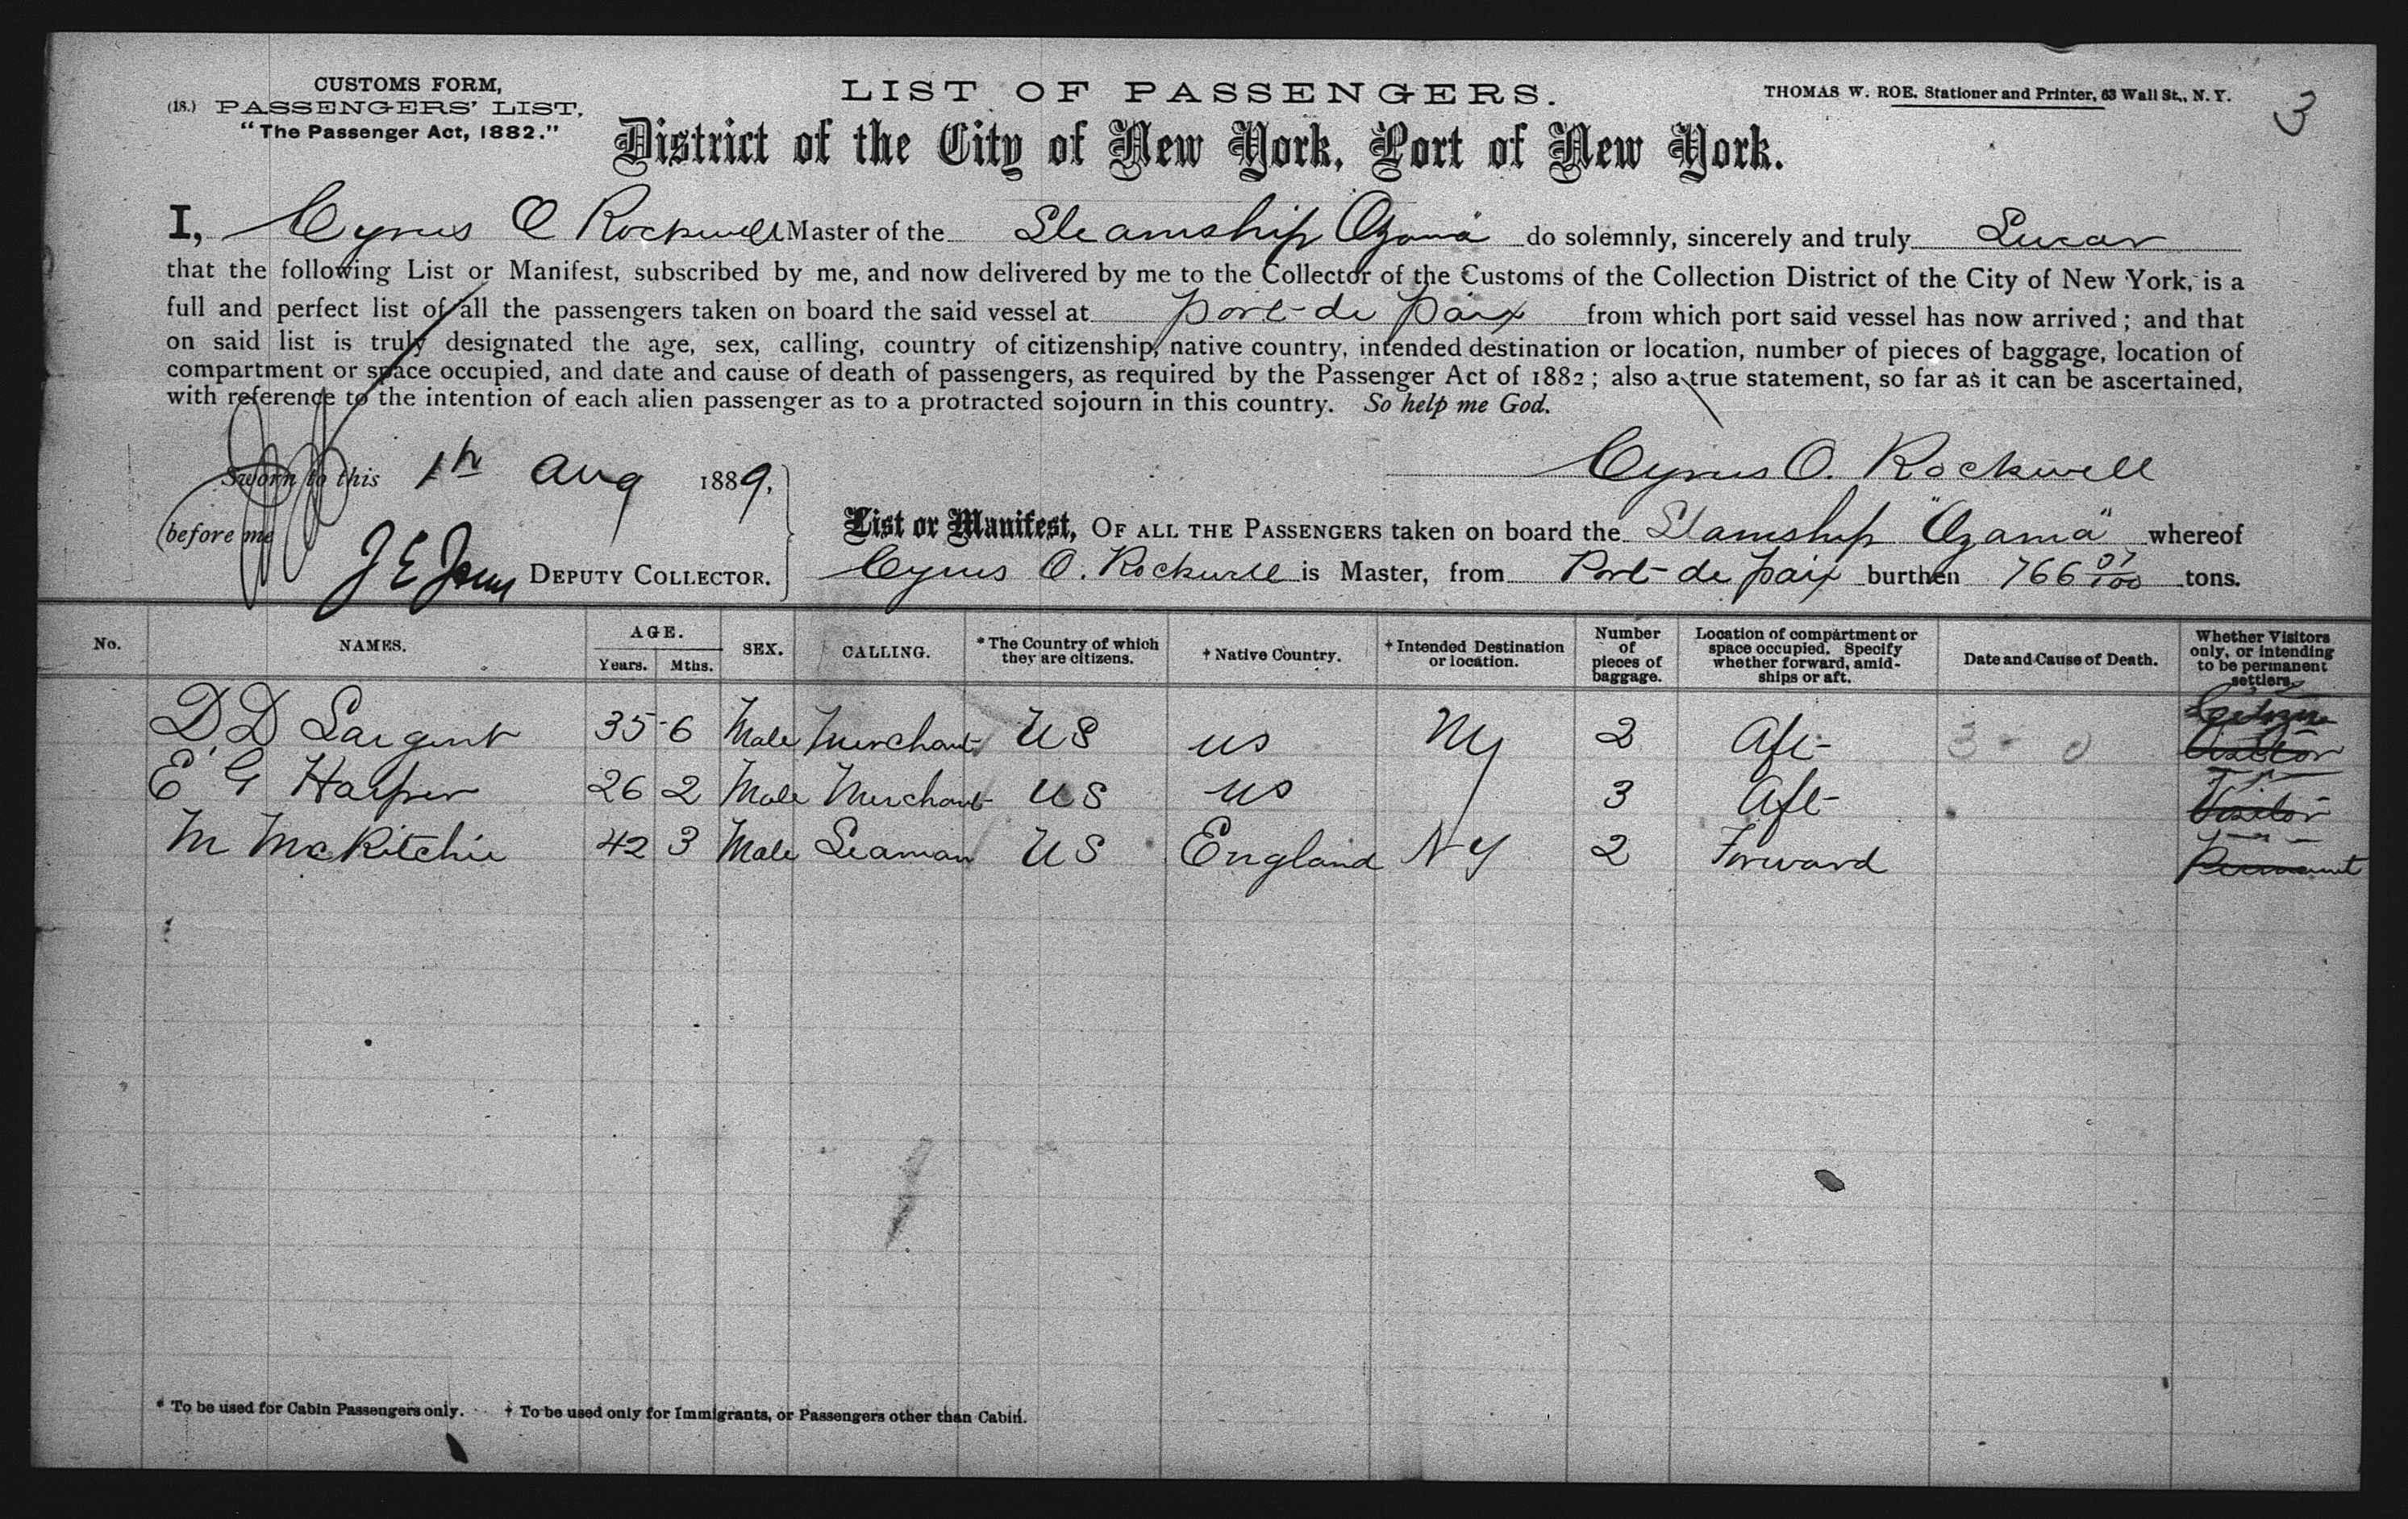 CUSTOMS FORM,
(18.) PASSENGERS' LIST,
"The Passenger Act, 1882."
LIST OF PASSENGERS.
THOMAS W. ROE, Stationer and Printer, 63 Wall St., N. Y.
3
District of the City of New York, Port of New York.
I, Cyrus O Rockwell Master of the Steamship Ozama do solemnly, sincerely and truly Swear
that the following List or Manifest, subscribed by me, and now delivered by me to the Collector of the Customs of the Collection District of the City of New York, is a
full and perfect list of all the passengers taken on board the said vessel at Port-de Paix from which port said vessel has now arrived; and that
on said list is truly designated the age, sex, calling, country of citizenship, native country, intended destination or location, number of pieces of baggage, location of
compartment or space occupied, and date and cause of death of passengers, as required by the Passenger Act of 1882; also a true statement, so far as it can be ascertained,
with reference to the intention of each alien passenger as to a protracted sojourn in this country. So help me God.
Cyrus O. Rockwell
Sworn to this 1st Aug 1889,
before me
J E Jones DEPUTY COLLECTOR.
List or Manifest, OF ALL THE PASSENGERS taken on board the Steamship "Ozama" whereof
Cyrus O. Rockwell is Master, from Port-de Paix burthen 766 07/100 tons.
No. NAMES. AGE. Years. Mths. SEX. CALLING. * The Country of which they are citizens. † Native Country. † Intended Destination or location. Number of pieces of baggage. Location of compartment or space occupied. Specify whether forward, amidships or aft. Date and Cause of Death. Whether Visitors only, or intending to be permanent settlers.
D. D Sargent 35 6 Male Merchant US US NY 2 Aft Visitor
E G Harper 26 2 Male Merchant US US 3 Aft Visitor
M McRitchie 42 3 Male Seaman US England NY 2 Forward Permanent
* To be used for Cabin Passengers only. † To be used only for Immigrants, or Passengers other than Cabin.